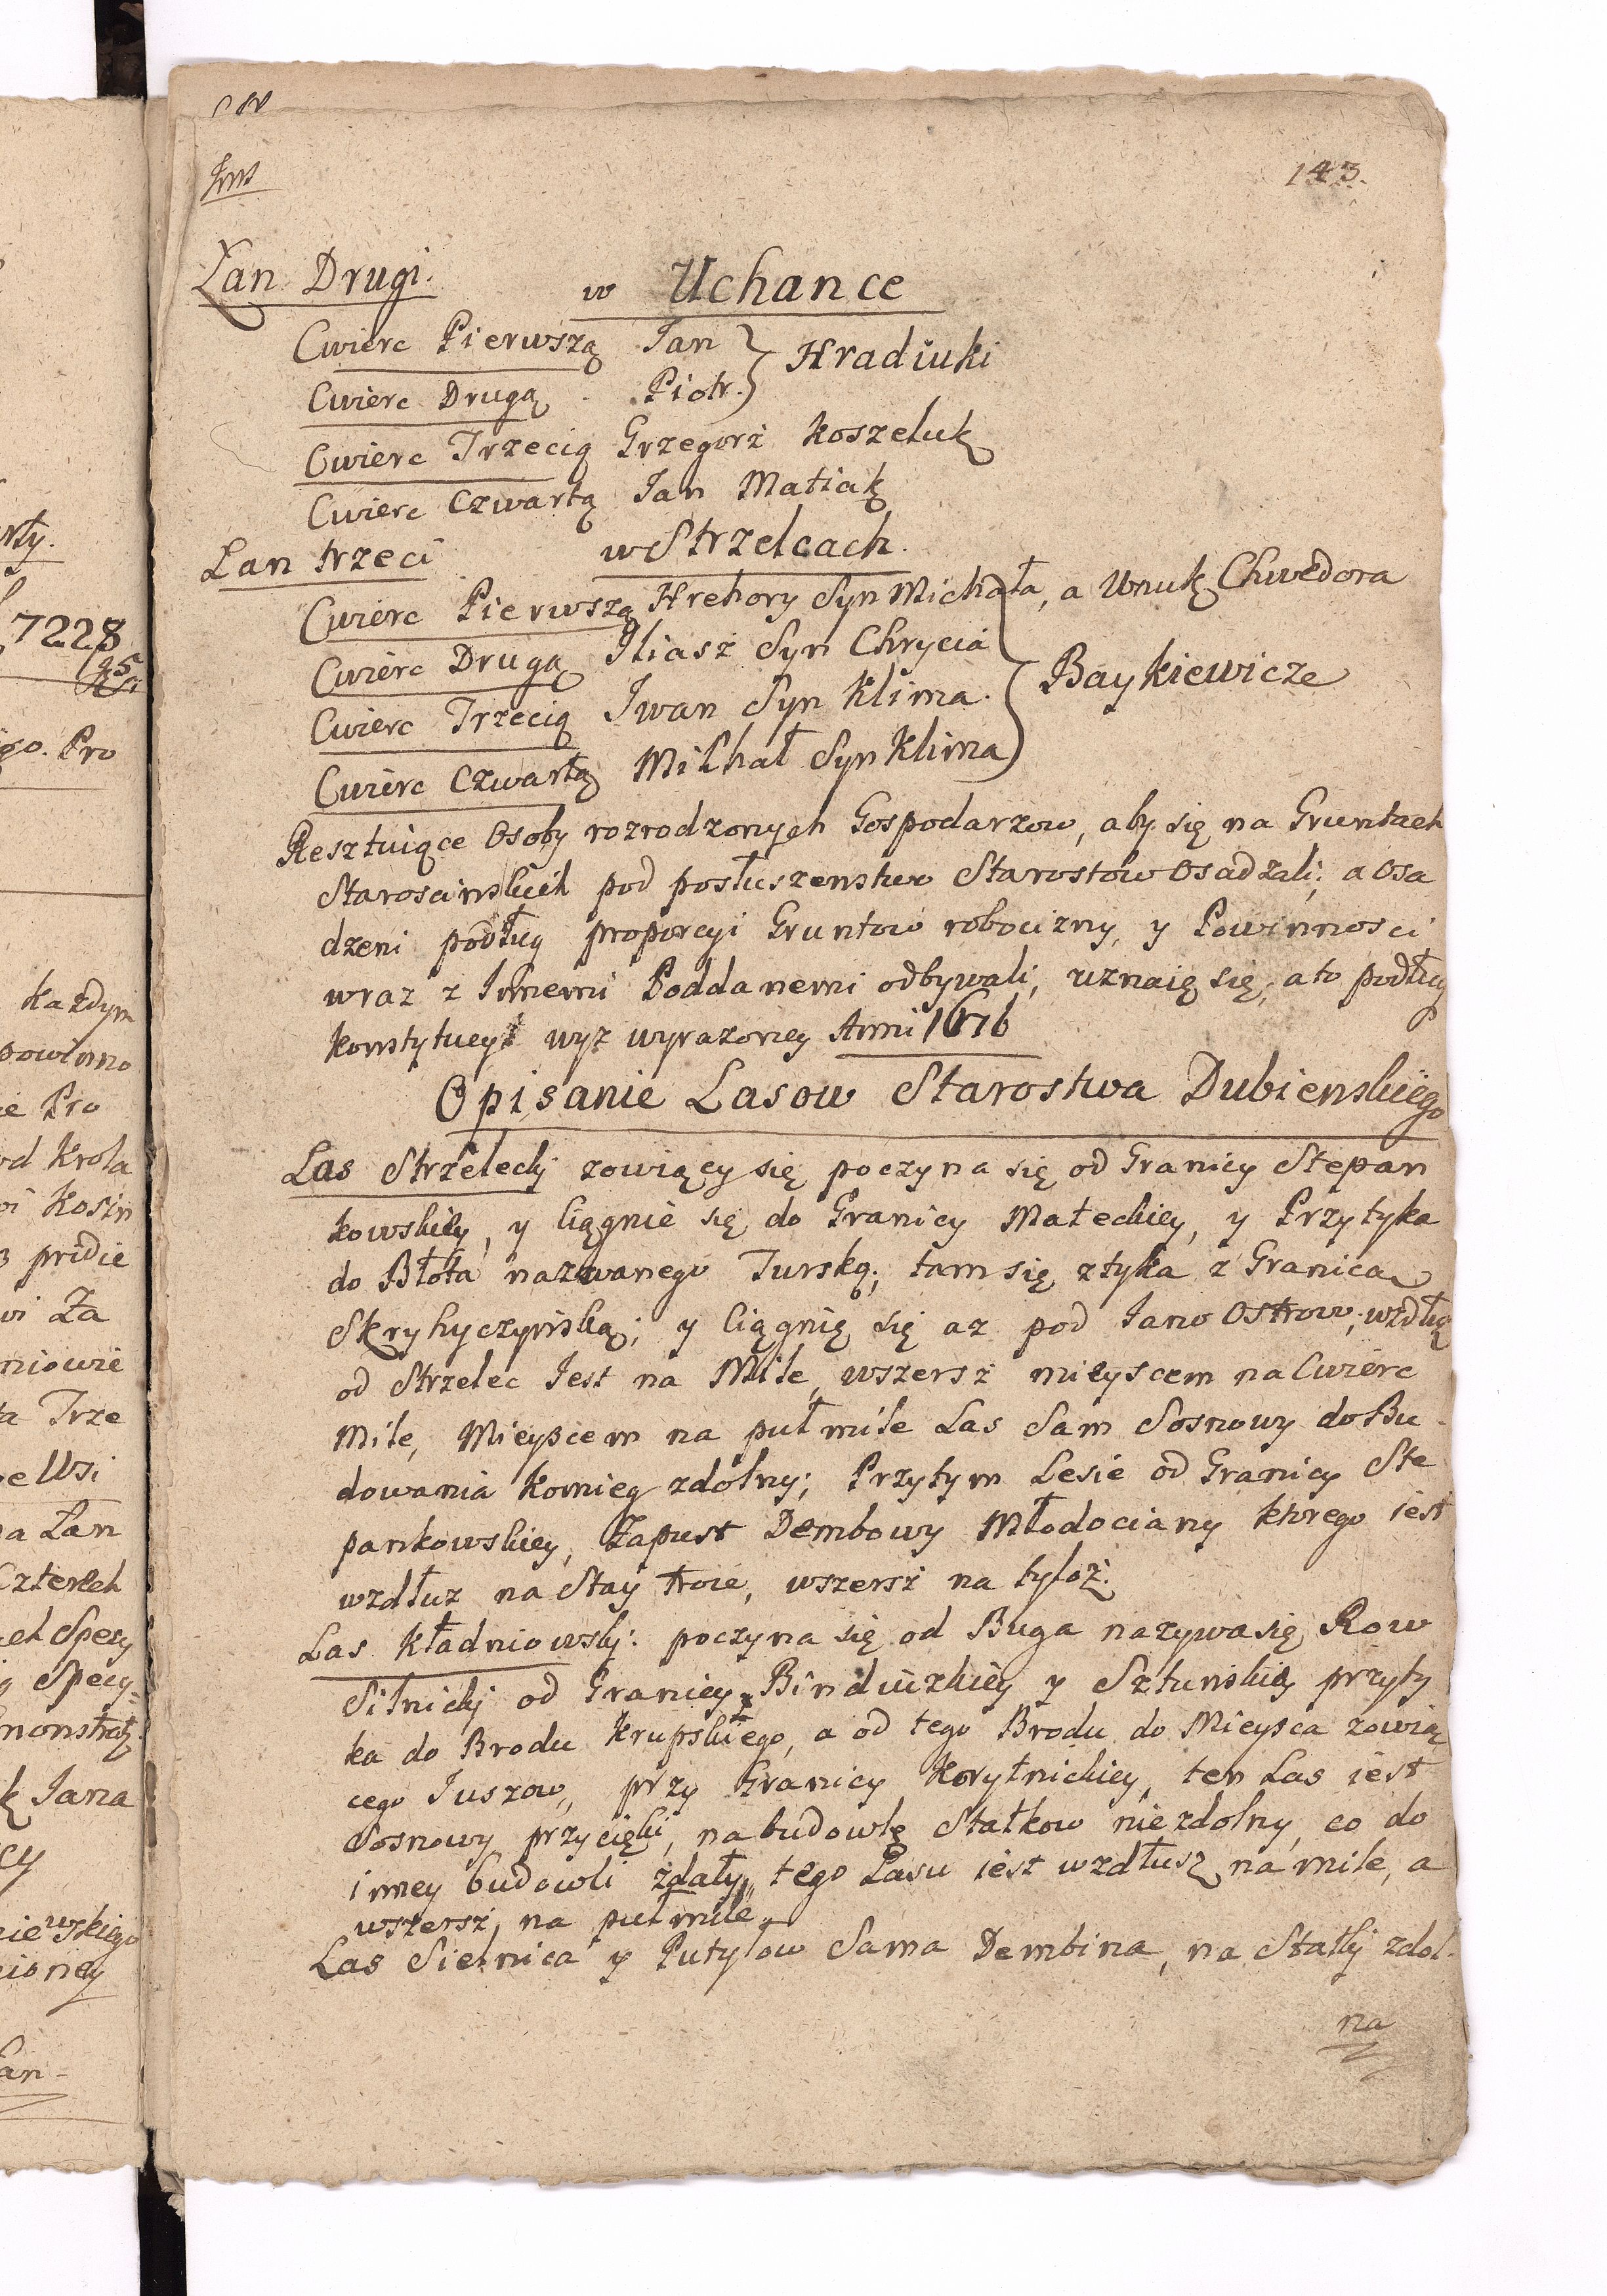 143.
Łan Drugi. w Uchance
Cwierc Pierwszą Jan } Hradiuki
Cwierc Drugą . Piotr. }
Cwierc Trzecią Grzegorz Koszeluk
Cwierc Czwartą Jan Matiak
Łan trzeci w Strzelcach.
Cwierc Pierwszą Hrehory Syn Michała, a Wnuk Chwedora
Cwierc Drugą Iliasz Syn Chrycia } Baykiewicze
Cwierc Trzecią Iwan Syn Klima.
Cwierc Czwartą Michał Syn Klima
Resztuiące Osoby rozrodzonych Gospodarzow, aby się na Gruntach
Staroscinskich pod posłuszenstwo Starostow Osadzali; a Osa
dzeni podług proporcyi Gruntow robocizny, y Powinnosci
wraz z Innemi Poddanemi odbywali, uznaią się, a to podług
Konstytucyi wyz wyrazoney Anni 1676
Opisanie Lasow Starostwa Dubienskiego
Las Strzelecki zowiący się poczyna się od Granicy Stepan
kowskiey, y Ciągnie się do Granicy Małeckiey, y Przytyka
do Błota nazwanego Turską; tam się ztyka z Granica
Skryhyczynską; y Ciągnię się az pod Janw Ostrow; wzdłuz
od Strzelec Jest na Mile, wszersz mieyscem na Cwierc
Mile, Mieyscem na puł mile Las Sam Sosnowy do Bu
dowania Komieg zdolny; Przytym Lesie od Granicy Ste
pankowskiey, Zapust Dembowy Młodociany ktorego iest
wzdłuz na Stay troie, wszersz na tyloz:
Las Kładniowski: poczyna się od Buga nazywa się Row
Silnicki od Granicy Binduzkiey y Sztunskiey przyty
ka do Brodu Krupskiego, a od tego Brodu do Mieysca zowią
cego Juszow, przy Granicy Korytnickiey, ten Las iest
Sosnowy przycięki, na budowlę Statkow niezdolny, co do
inney budowli zdały, tego Lasu iest wzdłusz na mile, a
wszersz, na puł mile.
Las Sielnica y Putyłow Sama Dembina, na Statki zdol-
na